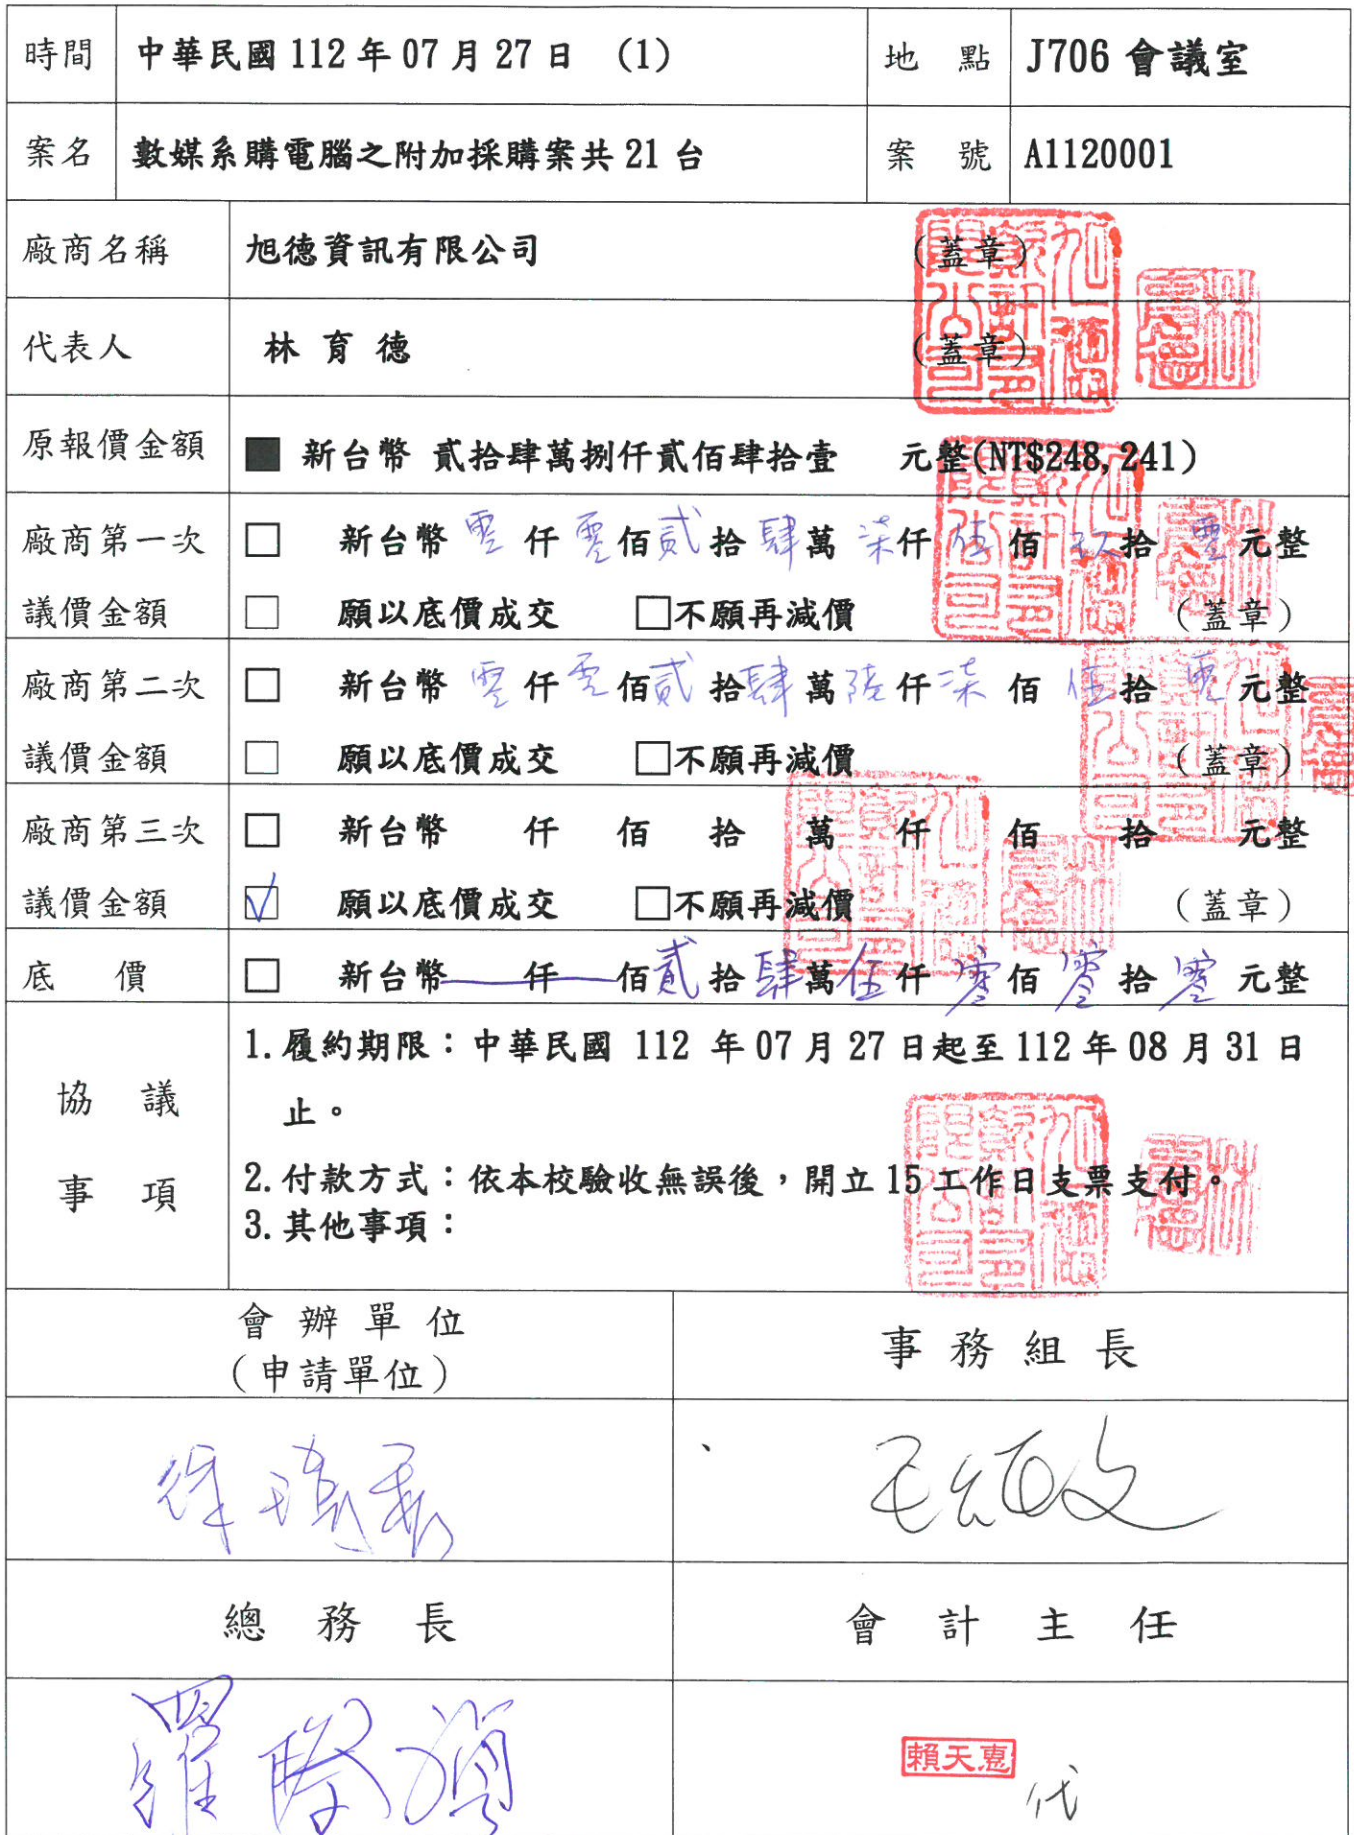 時間 中華民國 112 年 07 月 27 日 (1) 地 點 J706 會議室
案名 數媒系購電腦之附加採購案共 21 台 案 號 A1120001
廠商名稱 旭德資訊有限公司 (蓋章)
代表人 林 育 德 (蓋章)
原報價金額 ■ 新台幣 貳拾肆萬捌仟貳佰肆拾壹 元整(NT$248,241)
廠商第一次 □ 新台幣 零 仟 零 佰 貳 拾 肆 萬 柒 仟 伍 佰 玖 拾 零 元整
議價金額 □ 願以底價成交 □不願再減價 (蓋章)
廠商第二次 □ 新台幣 零 仟 零 佰 貳 拾 肆 萬 陸 仟 柒 佰 伍 拾 零 元整
議價金額 □ 願以底價成交 □不願再減價 (蓋章)
廠商第三次 □ 新台幣 仟 佰 拾 萬 仟 佰 拾 元整
議價金額 ☑ 願以底價成交 □不願再減價 (蓋章)
底 價 □ 新台幣 仟 佰 貳 拾 肆 萬 伍 仟 零 佰 零 拾 零 元整
協 議
事 項
1. 履約期限：中華民國 112 年 07 月 27 日起至 112 年 08 月 31 日
止。
2. 付款方式：依本校驗收無誤後，開立 15 工作日支票支付。
3. 其他事項：
會 辦 單 位
(申請單位)
事 務 組 長
總 務 長 會 計 主 任
賴天惠
代